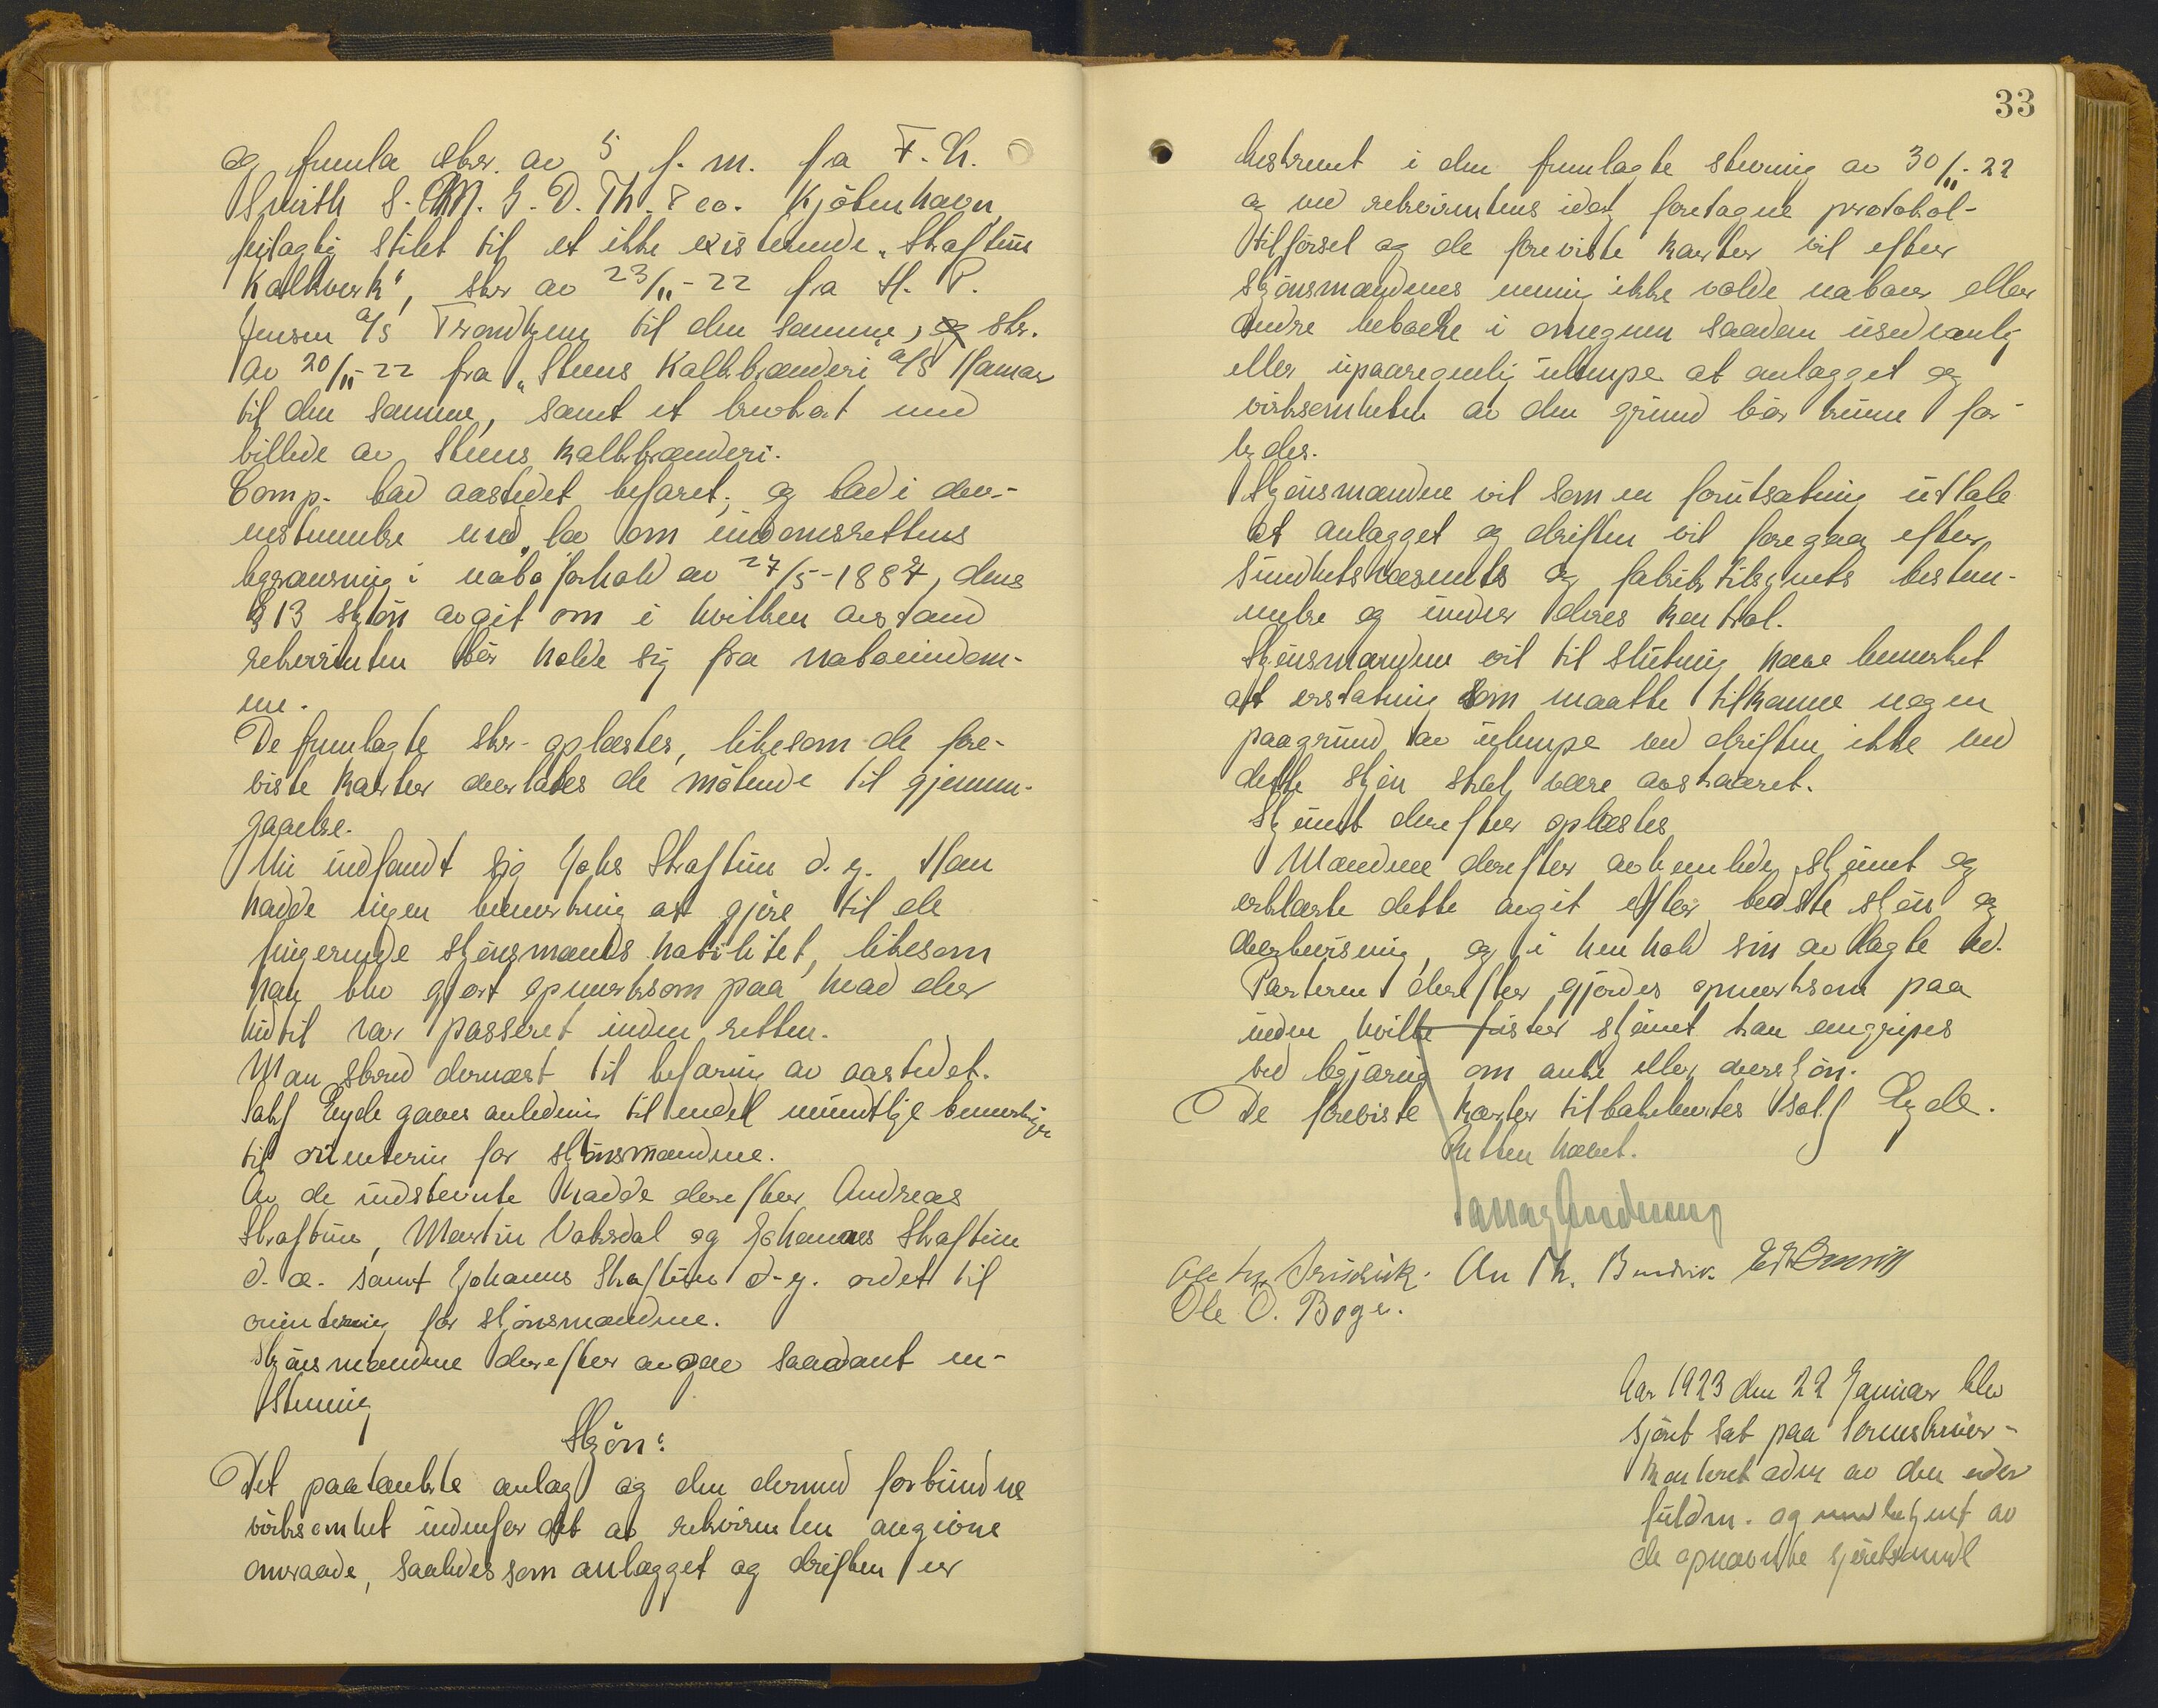 og fremla skr. av 5 f. m. fra F. L.
Smidth S. M. G. D. Th. & co. Kjöbenhavn
feilagtig stilet til et ikke existerende "Skaftun
Kalkverk", skr av 23/11-22 fra H. P.
Jensen A/S Trondhjem til den samme, og skr.
av 20/11-22 fra "Steens Kalkbrænderi A/S Hamar
til den samme, samt et brevkort med
billede av Steens Kalkbrænderi.
Comp. bad aastedet befaret, og bad i over-
ensstemmelse med "lov om eiendomsrettens
begrænsning i naboforhold av 27/5-1887, dens
§ 13 skjön avgit om i hvilken avstand
rekvirenten bör holde sig fra naboeiendom-
me.
De fremlagte skr. oplæstes, likesom de fore-
viste karter overlates de mötende til gjennem-
gaaelse.
Nu indfandt sig Johs Skaftun d. y. Han
hadde ingen bemerkning at gjöre til de
fungerende skjönsmænds habilitet, likesom
han blev gjort opmerksom paa hvad der
hidtil var passeret inden retten.
Man skred dernæst til befaring av aastedet.
Sakf Eyde gaves anledning til endel mundtlige bemerkninger
til orientering for skjönsmændene.
Av de indstevnte hadde derefter Andreas
Skaftun, Martin Vaksdal og Johannes Skaftun
d. æ. samt Johannes Skaftun d. y. ordet til
orientering for skjönsmændene.
Skjönsmændene derefter avgav saadant en-
stemmig
Skjön:
Det paatænkte anlæg og den dermed forbundne
virksomhet indenfor det av rekvirenten angivne
omraade, saaledes som anlægget og driften er
33
beskrevet i den fremlagte stevning av 30/11-22
og ved rekvirentens idag foretagne protokol-
tilförsel og de foreviste karter vil efter
skjönsmændenes mening ikke volde naboer eller
andre beboere i omegnen saadan usedvanlig
eller upaaregnelig ulempe at anlægget og
virksomheten av den grund bör kunne for-
bydes.
Skjönsmændene vil som en forutsætning uttale
at anlægget og driften vil foregaa efter
sundhetsvæsenets og fabriktilsynets bestem-
melse og under deres kontrol.
Skjönsmændene vil til slutning have bemerket
at erstatning som maatte tilkomme nogen
paagrund av ulempe ved driften ikke ved
dette skjön skal være avskaaret.
Skjönnet derefter oplæstes
Mændene derefter avhjemlede skjönnet og
erklærte dette avgit efter bedste skjön og
overbevisning, og i henhold sin avlagte ed.
Parterne derefter gjordes opmerksom paa
inden hvilke frister skjönnet kan angripes
ved begjæring om anke eller overskjön.
De foreviste karter tilbakelevertes Sakf Eyde.
Retten hævet.
An Th. Bundvik.
Ole O. Boge.
Aar 1923 den 22 Januar blev
sjöret sat paa Sorenskriver-
kontoret adm av den edsv
fuldm. og medbetjent av
de opnævnte sjöretsmænd